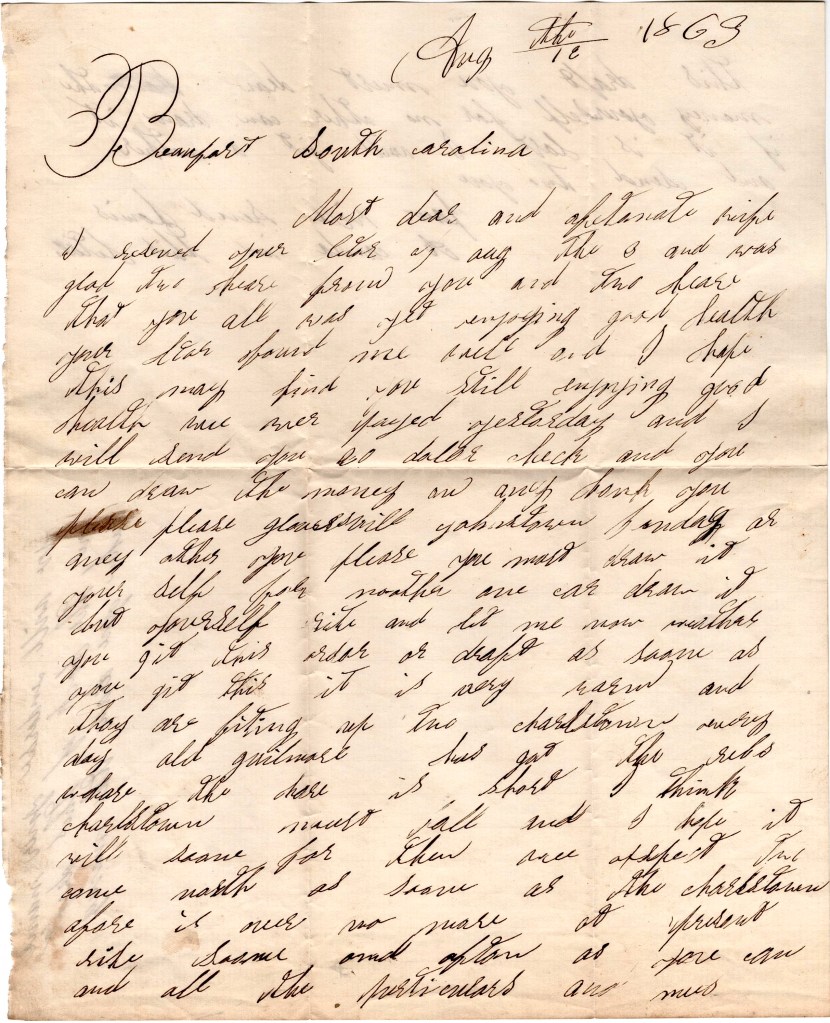 Aug the 18 1863
Beaufort South carolina
Most dear and afectonate wife
I reseved your letar of aug the 3 and was
glad two heare from you and two heare
that you all was yet enjoying good health
your letar found me well and I hope
this may find you still enjoying good
health wee wer payed yestorday and I
will send you 20 dolar check and you
can draw the money on any bank you
please please gloverswill johnstown fondag or
aney other you please you must draw it
your self for noother one can draw it
but yourself rite and let me now wether
you git this ordor or draft as soone as
you git this it is very warm and
they are fiting up two charlstown every
day old guilmore has got the rebs
whare the hare is short I think
charlstown must fall and I hope it
will soone for then wee expect two
come north as soone as the charlstown
afare is over no more at present
rite soone and often as you can
and all the perticulars and nues